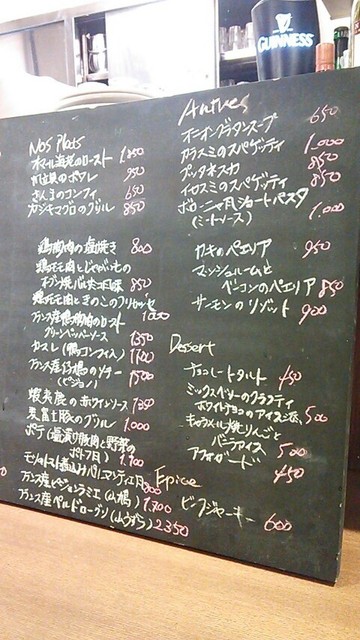 GUINNESS
Nos Plats
オマール海老のロースト 1,850
帆立貝のポワレ 950
さんまのコンフィ 650
カジキマグロのグリル 850
鶏胸肉の塩焼き 800
鶏もも肉とじゃがいもの
オーブン焼 バスク風 850
鶏もも肉ときのこのフリカッセ
フランス産鴨胸肉のロースト
グリーンペッパーソース 1350
カスレ (鴨コンフィ入) 1700
フランス産仔鳩のソテー
(ピジョン) 1500
蝦夷鹿の赤ワインソース 1350
栗富士豚のグリル 1,000
ポテ (塩漬け豚肉と野菜の
ポトフ風) 1,700
フランス産ペルドローグリ (山うずら) 2,350
Autres
オニオングラタンスープ 650
カラスミのスパゲッティ 1,000
プッタネスカ 850
イカスミのスパゲッティ 850
ボローニャ風ショートパスタ
(ミートソース) 1,000
カキのパエリア 950
マッシュルームと
ベーコンのパエリア 850
サーモンのリゾット 900
Dessert
チョコレートタルト 450
ミックスベリーのグラティネ
ホワイトチョコのアイス添え 500
キャラメル焼りんごと
バニラアイス 500
アフォガード 450
Epice
ビーフジャーキー 600